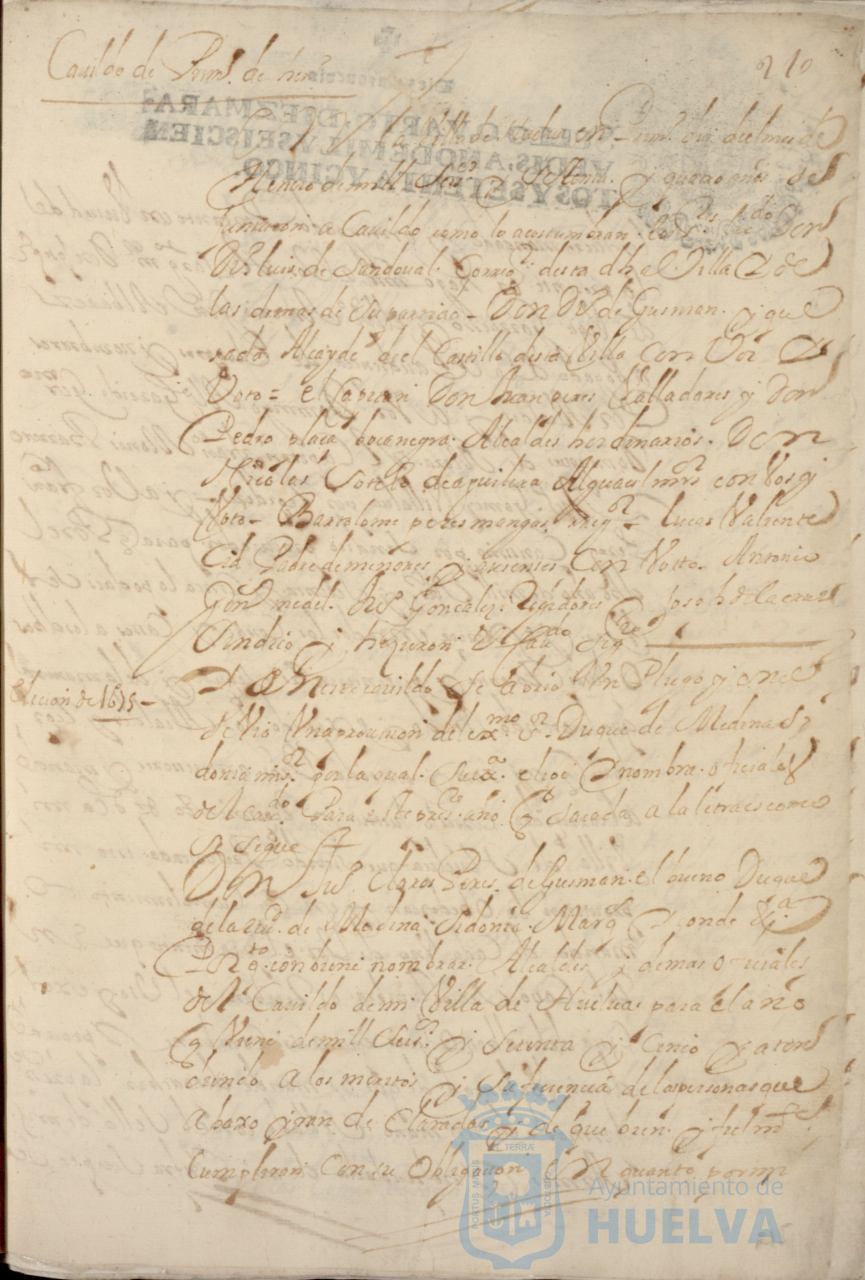 Cauildo de Prim.º de hen.º
210
En la Villa de Huelua en Prim.º dia del mes de
Henero de mill Seisos y Setenta y quatro años se
Juntaron a Cauildo como lo acostumbran los Sres Ldo Don
Luis de Sandoual Correg.r desta dha Villa y de
las demas de su partido = Don Di.º de Gusman y que
sada Alcayde del Castillo desta Villa con Voz y
Voto = el Capitan Don Juan peres Valladares y Don
Pedro plaça bocanegra Alcaldes hordinarios. Don
Nicolas Sotelo de aguilera Alguasil m.or con Vos y
Voto = Bartolome peres mangas Lucas Valiente
Cid Padre de menores y ausentes con Voto. Antonio
Gonçales Regidores Joseph de la cruz
Sindico y hizieron
elecion de 1675 =
En este cauildo se abrio Vn Pliego y en el
se vio Vna prouision del exmo Sr Duque de Medina Si
donia mi Sr por la qual Su exa elixe y nombra oficiales
del Caudo Para este press.te año q sacada a la letra es como
se sigue
Don Ju.º Claros Peres de Gusman el bueno Duque
de la ciud. de Medina Sidonia Marq.s Conde &.a
Por q.to conbiene nombrar Alcaldes y demas oficiales
del Cauildo de mi Villa de Huelua para el año
q Viene de mill Seisos y setenta y cinco y aten
diendo a los meritos y suficiencia de las personas que
abaxo yran declaradas y de que bien y fielmte
Cumpliran con su obligacion En quanto por mi
Ayuntamiento de
HUELVA